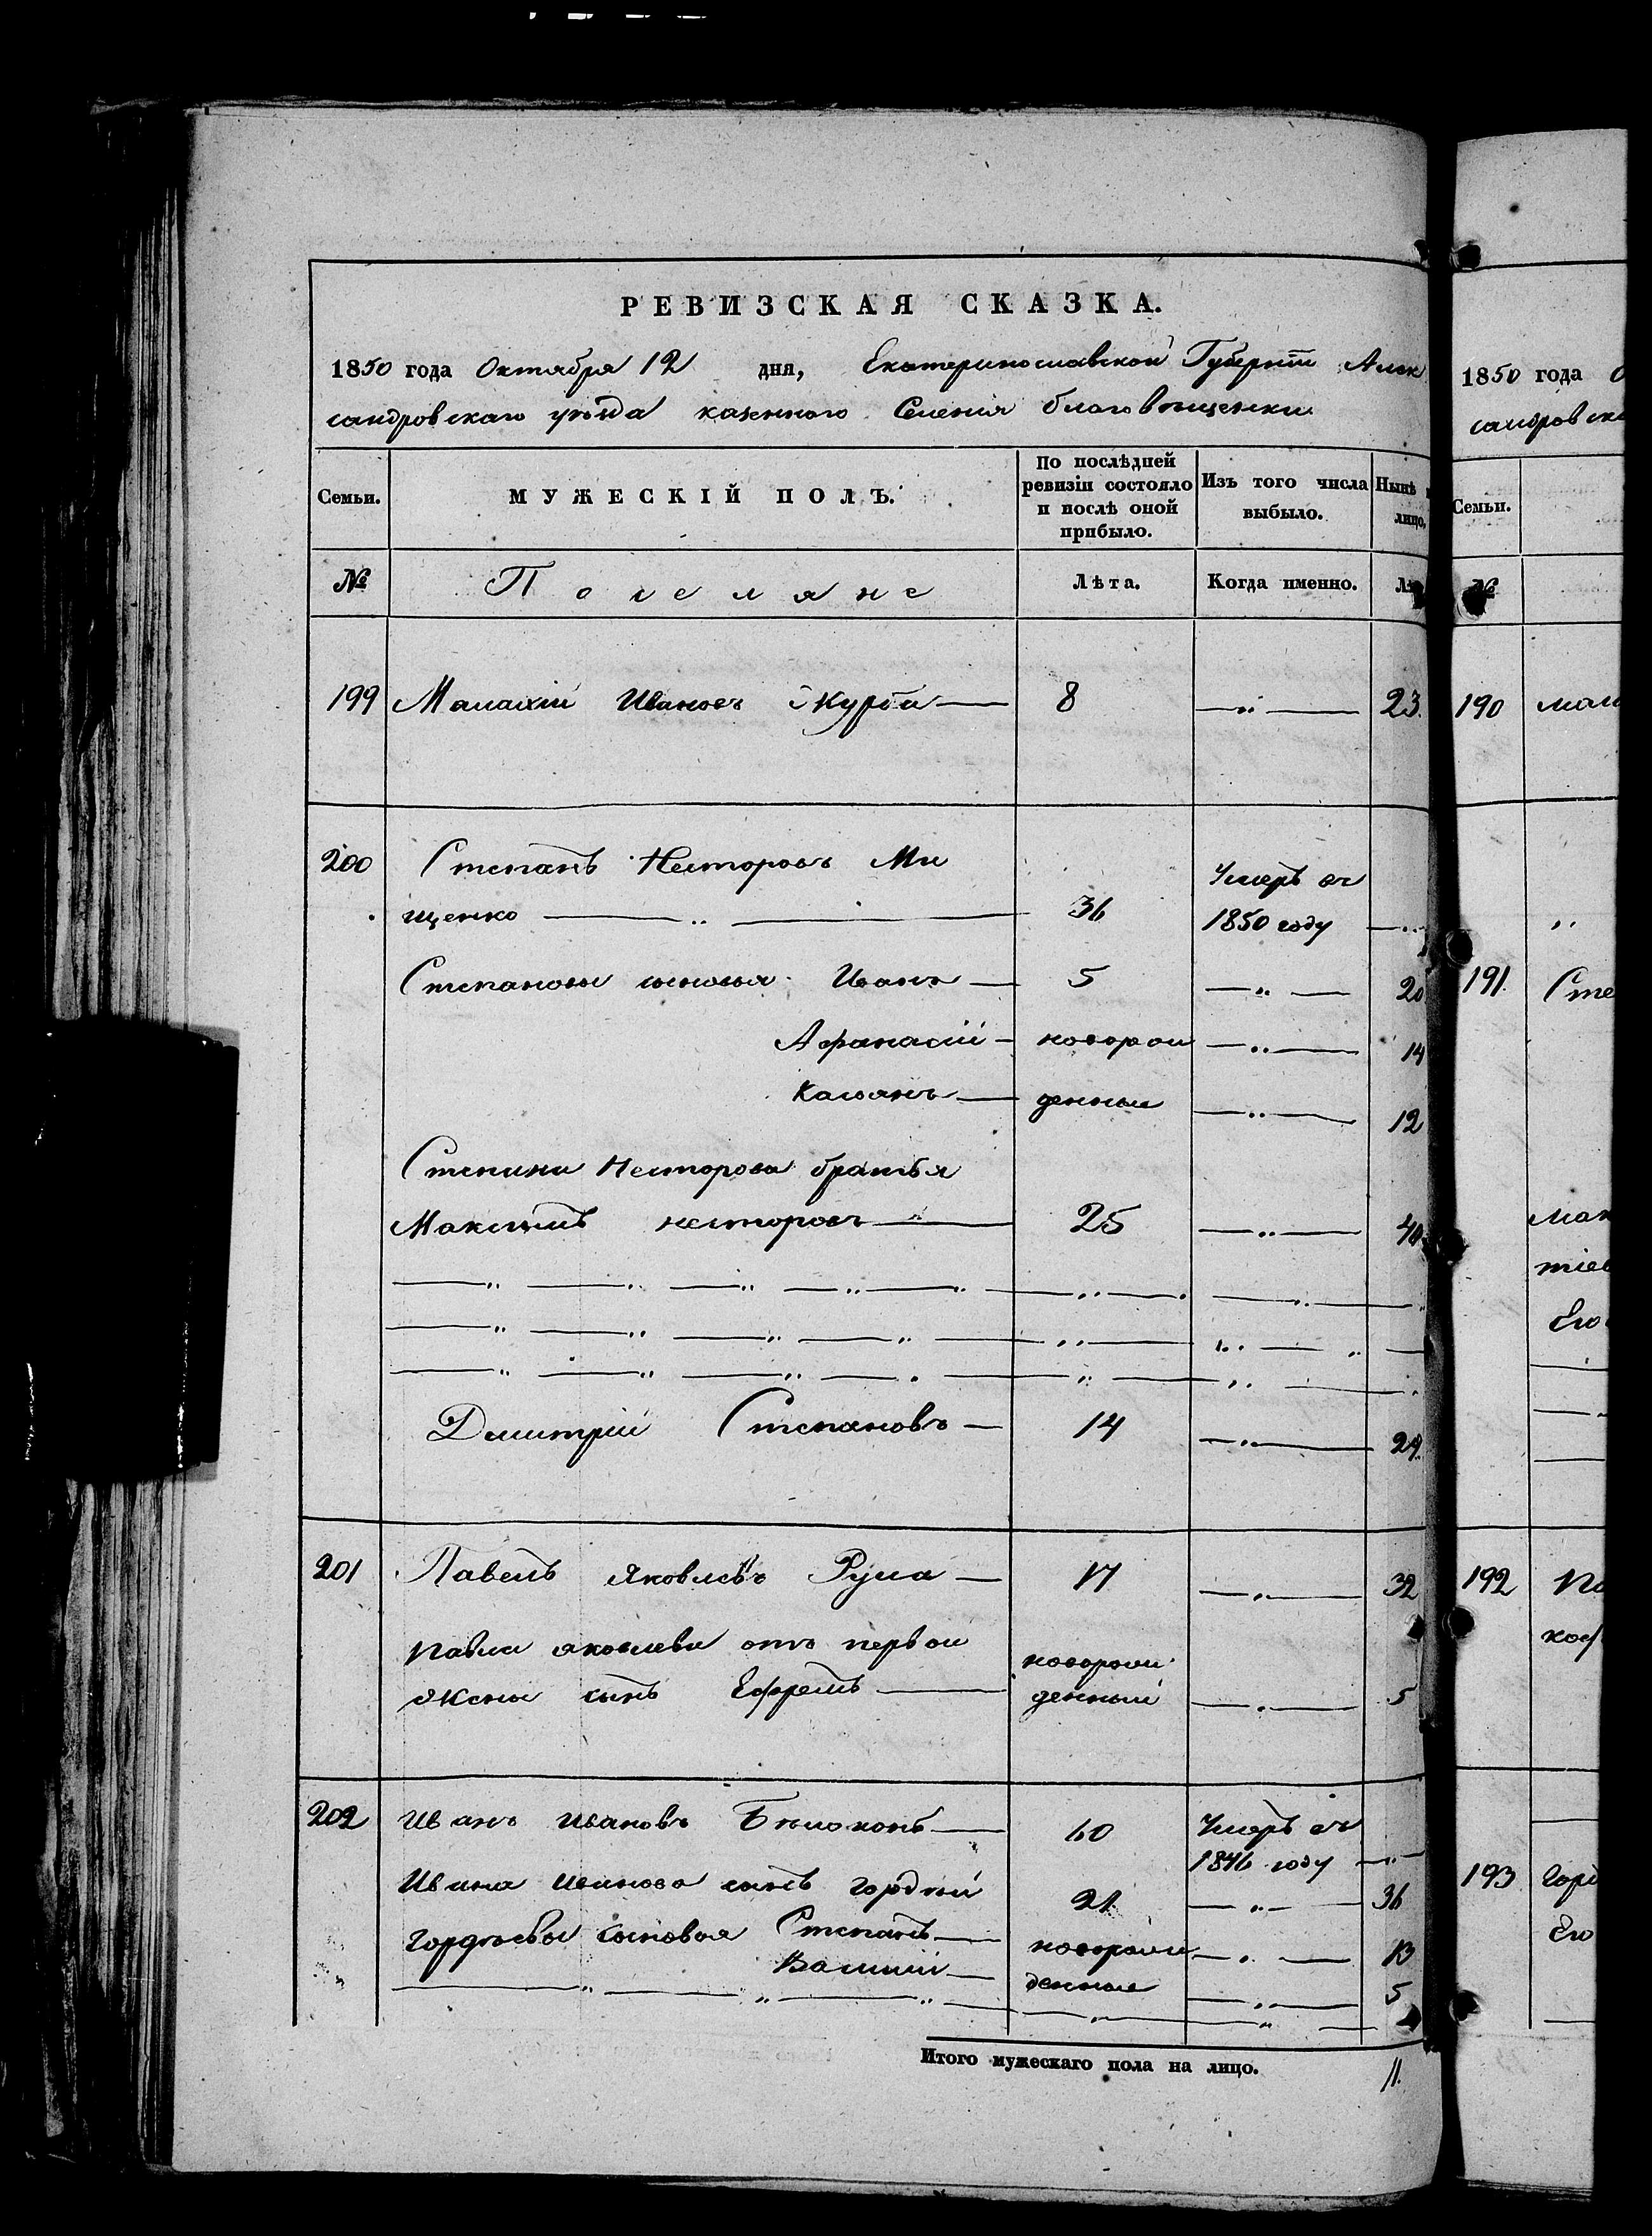 РЕВИЗСКАЯ СКАЗКА.
1850 года Октября 12 дня, Екатеринославской Губернiи Алек
сандровскаго уѣзда казенного Селенiя благовѣщенки
Семьи. МУЖЕСКIЙ ПОЛЪ. По послѣдней ревизiи состояло и послѣ оной прибыло. Изъ того числа выбыло. Нынѣ
лицо,
№ Поселяне Лѣта. Когда именно.
199 Малахiй Ивановъ Журба 8 — 23.
200 Степанъ Несторовъ Ми
щенко 36 Умеръ въ 1850 году —
Степановы сыновья Иванъ 5 — 20
Афанасiй новорож — 14
Касьянъ денные — 12
Степана Несторова братья
Максимъ несторовъ 25 — 40
Дмитрiй Степановъ 14 — 29.
201 Павелъ Яковлевъ Рула 17 — 32
Павла яковлева отъ первой
Жены сынъ Ефремъ новорож денный — 5
202 Иванъ Ивановъ Бѣлоконь 60 Умеръ въ
1846 году —
Ивана Иванова сынъ Гордѣй 21 — 36
Гордѣевы Сыновья Степанъ новорож — 13
Василiй денные — 5
Итого мужескаго пола на лицо. 11.
1850 года О
сандровска
Семьи.
№
190
191. Сте
Мак
Его
192 Па
193 Горд
Его